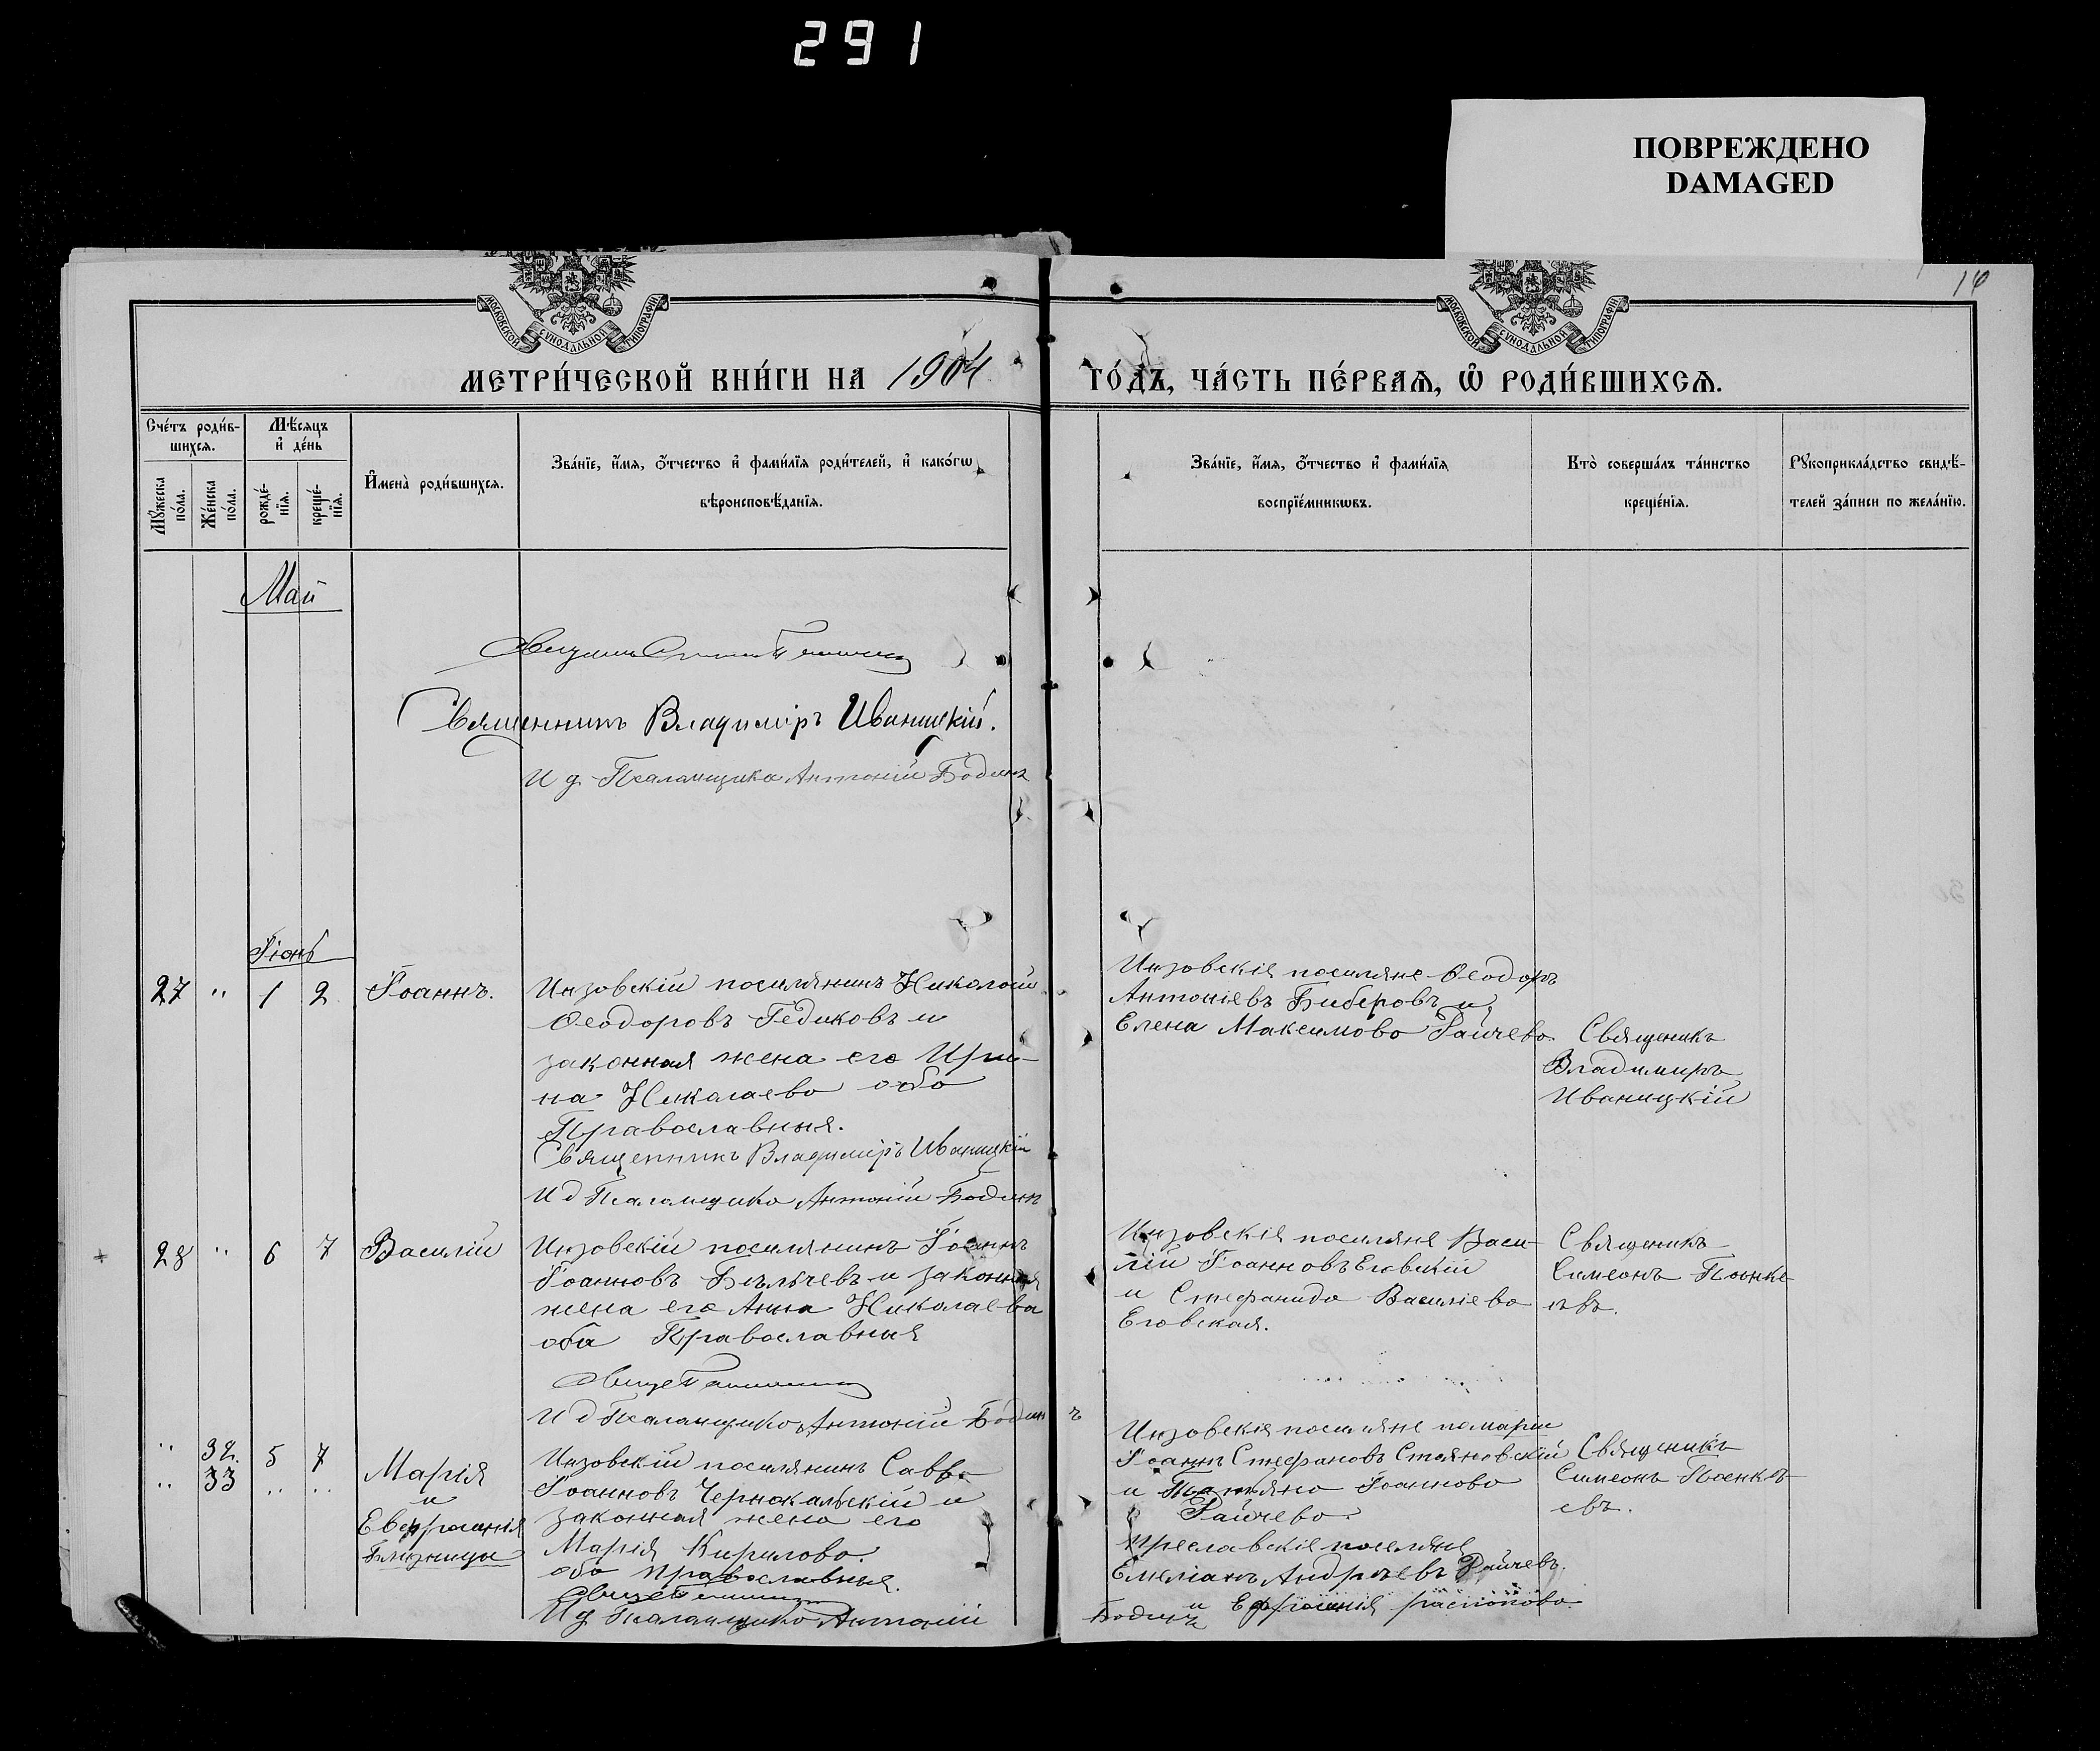 291
ПОВРЕЖДЕНО
DAMAGED
14
МОСКОВСКОЙ СѴНОДАЛЬНОЙ ТИПОГРАФІИ
МОСКОВСКОЙ СѴНОДАЛЬНОЙ ТИПОГРАФІИ
МЕТРИ́ЧЕСКОЙ КНИ́ГИ НА 1904
ГО́ДЪ, ЧА́СТЬ ПЕ́РВАѦ, Ѽ РОДИ́ВШИХСѦ.
Сче́тъ роди́в-
шихсѧ.
Мꙋ́жеска по́ла.
Же́нска по́ла.
Мѣ́сѧцъ
и҆ де́нь
рожде́-
нїѧ.
креще́-
нїѧ.
И҆мена̀ роди́вшихсѧ.
Зва́нїе, и҆́мѧ, ѻ҆́тчество и҆ фами́лїѧ роди́телей, и҆ како́гѡ
вѣроисповѣ́данїѧ.
Зва́нїе, и҆́мѧ, ѻ҆́тчество и҆ фами́лїѧ
воспрїе́мникѡвъ.
Кто̀ соверша́лъ та́инство
креще́нїѧ.
Рꙋкоприкла́дство свидѣ́-
телей за́писи по жела́нїю.
Май
Священникъ Владиміръ Иваницкій.
И д Псаломщика Антоній Бодянъ
Іюнь
27 " 1 2 Іоаннъ.
Инзовскій поселянинъ Николай
Ѳеодоровъ Гедиковъ и
законная жена его Ири-
на Николаева оба
Православныя.
Священникъ Владиміръ Иваницкій
И д Псаломщика Антоній Бодянъ
Инзовскія поселяне Ѳеодоръ
Антоніевъ Биберовъ и
Елена Максимова Райчева
Священикъ
Владимиръ
Иваницкій
28 " 6 7 Василій
Инзовскій поселянинъ Іоаннъ
Іоанновъ Бѣльчевъ и законная
жена его Анна Николаева
оба Православныя
И д Псаломщика Антоній Бодянъ
Инзовскія поселяне Васи-
лій Іоанновъ Еговскій
и Стефанида Василіева
Еговская.
Священикъ
Симеонъ
" 32. 5 7
" 33 " "
Марія
и
Евфросинія
Близницы
Инзовскій поселянинъ Савва
Іоанновъ Чернокальскій и
законная жена его
Марія Кирилова.
оба православныя.
И д Псаломщика Антоній
Бодянъ
Инзовскія поселяне
Іоаннъ Стефановъ Стояновскій
и Татьяна Іоаннова
Райчева.
Преславскіе поселяне
Емеліанъ Андреевъ Райчевъ
и Ефросинія
Священикъ
Симеонъ
евъ.